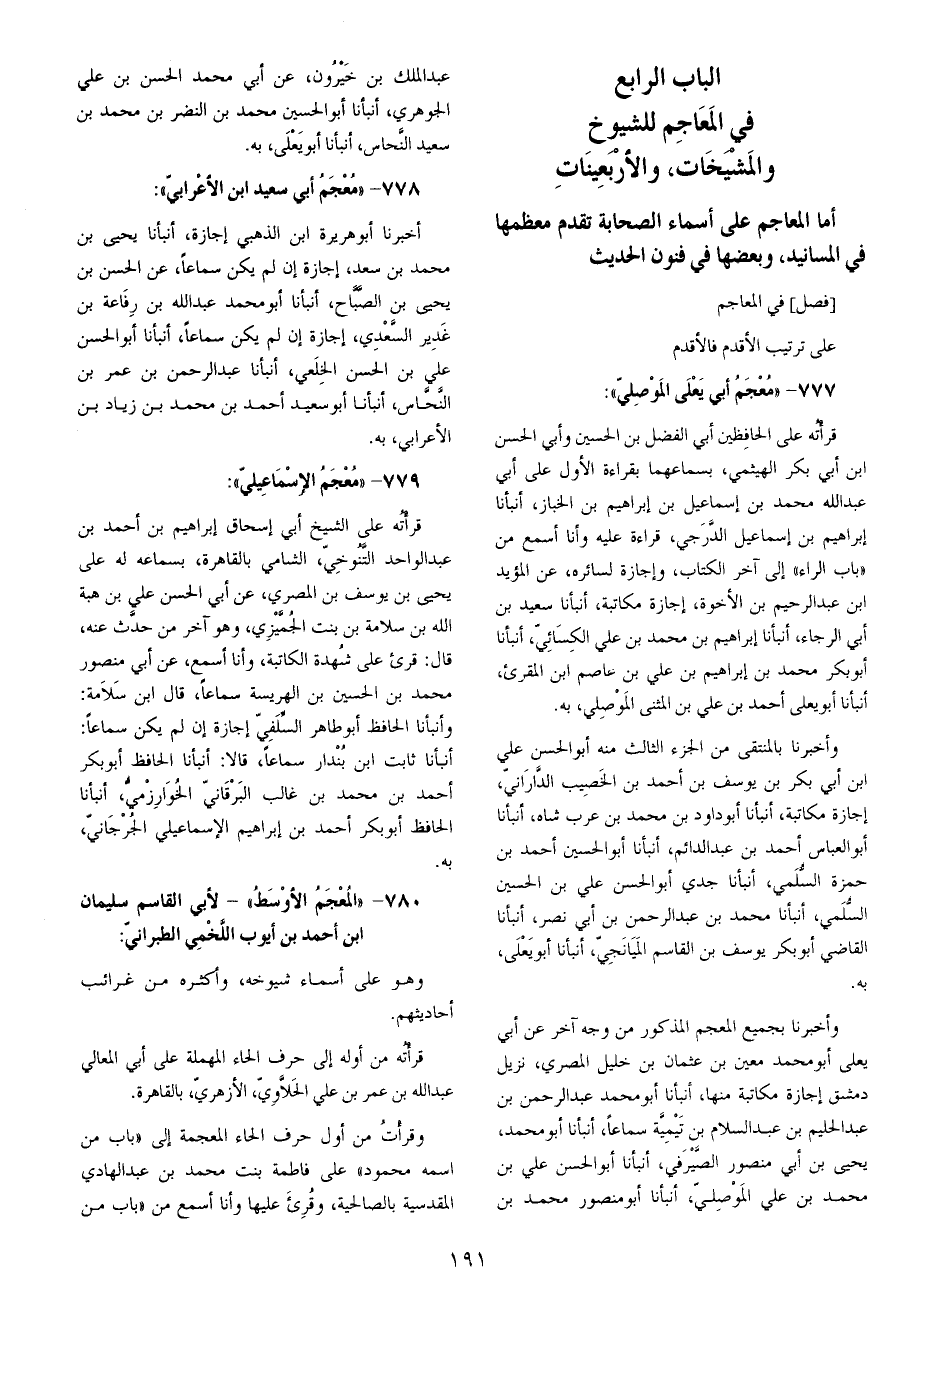 الباب الرابع
في المَعَاجِم للشيوخ
والمَشْيَخَات، والأرْبَعِينَاتِ
أما المعاجم على أسماء الصحابة تقدم معظمها
في المسانيد، وبعضها في فنون الحديث
[فصل] في المعاجم
على ترتيب الأقدم فالأقدم
٧٧٧- «مُعْجَمُ أبي يَعْلَى المَوْصِليّ»:
قرأتُه على الحافِظين أبي الفضل بن الحسين وأبي الحسن
ابن أبي بكر الهيثمي، بسماعهما بقراءة الأول على أبي
عبدالله محمد بن إسماعيل بن إبراهيم بن الخباز، أنبأنا
إبراهيم بن إسماعيل الدَّرَجي، قراءة عليه وأنا أسمع من
«باب الراء» إلى آخر الكتاب، وإجازة لسائره، عن المؤيد
ابن عبدالرحيم بن الأخوة، إجازة مكاتبة، أنبأنا سعيد بن
أبي الرجاء، أنبأنا إبراهيم بن محمد بن علي الكِسَائيّ، أنبأنا
أبوبكر محمد بن إبراهيم بن علي بن عاصم ابن المقرئ،
أنبأنا أبويعلى أحمد بن علي بن المثنى المَوْصِلي، به.
وأخبرنا بالمنتقى من الجزء الثالث منه أبوالحسن علي
ابن أبي بكر بن يوسف بن أحمد بن الخَصِيب الدَّارَانيّ،
إجازة مكاتبة، أنبأنا أبوداود بن محمد بن عرب شاه، أنبأنا
أبوالعباس أحمد بن عبدالدائم، أنبأنا أبوالحسين أحمد بن
حمزة السُّلَمي، أنبأنا جدي أبوالحسن علي بن الحسين
السُّلَمي، أنبأنا محمد بن عبدالرحمن بن أبي نصر، أنبأنا
القاضي أبوبكر يوسف بن القاسم المَيَانَجِيّ، أنبأنا أبويَعْلَى،
به.
وأخبرنا بجميع المعجم المذكور من وجه آخر عن أبي
يعلى أبومحمد معين بن عثمان بن خليل المصري، نزيل
دمشق إجازة مكاتبة منها، أنبأنا أبومحمد عبدالرحمن بن
عبدالحليم بن عبدالسلام بن تَيْمِيَّة سماعاً، أنبأنا أبومحمد،
يحيى بن أبي منصور الصَّيْرَفي، أنبأنا أبوالحسن علي بن
محمد بن علي المَوْصِليّ، أنبأنا أبومنصور محمد بن
عبدالملك بن خَيْرُون، عن أبي محمد الحسن بن علي
الجوهري، أنبأنا أبوالحسين محمد بن النضر بن محمد بن
سعيد النَّحاس، أنبأنا أبويَعْلَى، به.
٧٧٨- «مُعْجَمُ أبي سعيد ابن الأعْرابيّ»:
أخبرنا أبوهريرة ابن الذهبي إجازة، أنبأنا يحيى بن
محمد بن سعد، إجازة إن لم يكن سماعاً، عن الحسن بن
يحيى بن الصَّبَّاح، أنبأنا أبومحمد عبدالله بن رِفَاعة بن
غَدِير السَّعْدِي، إجازة إن لم يكن سماعاً، أنبأنا أبوالحسن
علي بن الحسن الخِلَعي، أنبأنا عبدالرحمن بن عمر بن
النَّحَّاس، أنبأنا أبوسعيد أحمد بن محمد بن زياد بن
الأعرابي، به.
٧٧٩- «مُعْجَمُ الإسْمَاعِيليّ»:
قرأتُه على الشيخ أبي إسحاق إبراهيم بن أحمد بن
عبدالواحد التَّنُوخِيّ، الشامي بالقاهرة، بسماعه له على
يحيى بن يوسف بن المصري، عن أبي الحسن علي بن هبة
الله بن سلامة بن بنت الجُمَّيْزِي، وهو آخر من حدَّث عنه،
قال: قرئ على شُهدة الكاتبة، وأنا أسمع، عن أبي منصور
محمد بن الحسين بن الهريسة سماعاً، قال ابن سَلَامَة:
وأنبأنا الحافظ أبوطاهر السِّلَفِيّ إجازة إن لم يكن سماعاً:
أنبأنا ثابت ابن بُنْدار سماعاً، قالا: أنبأنا الحافظ أبوبكر
أحمد بن محمد بن غالب البَرْقَانيّ الخُوارِزْمِي، أنبأنا
الحافظ أبوبكر أحمد بن إبراهيم الإسماعيلي الجُرْجَانيّ،
به.
٧٨٠- «المُعْجَمُ الأوْسَطُ» – لأبي القاسم سليمان
ابن أحمد بن أيوب اللَّخْمِي الطبرانيّ:
وهو على أسماء شيوخه، وأكثره من غرائب
أحاديثهم.
قرأتُه من أوله إلى حرف الحاء المهملة على أبي المعالي
عبدالله بن عمر بن علي الحَلَاَّوِيّ، الأزهريّ، بالقاهرة.
وقرأتُ من أول حرف الخاء المعجمة إلى «باب من
اسمه محمود» على فاطمة بنت محمد بن عبدالهادي
المقدسية بالصالحية، وقُرِئَ عليها وأنا أسمع من «باب من
١٩١